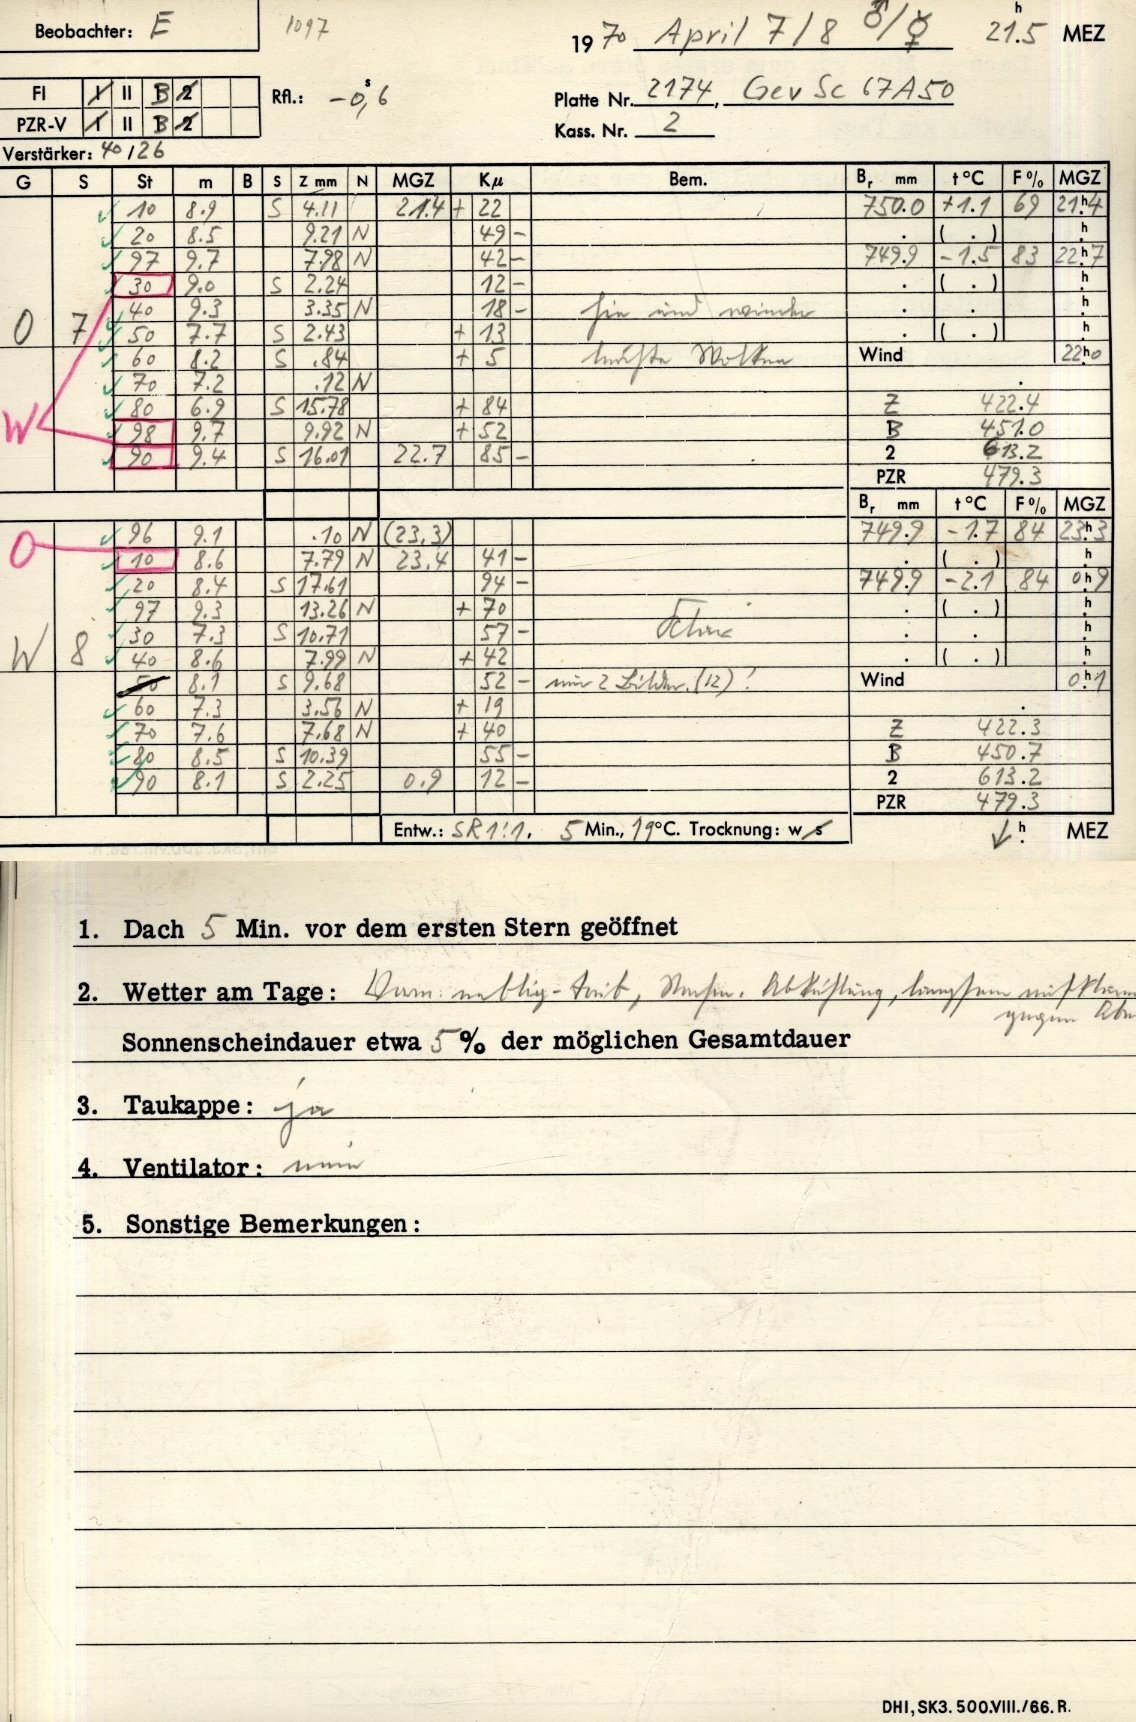 Beobachter: E 1097 19 70 April 7/8 ♂/☿ 21.5 h MEZ
FI I II B 2 Rfl.: -0,6 s Platte Nr. 2174, Gev Sc 67A50
PZR-V I II B 2 Kass. Nr. 2
Verstärker: 40/26
G S St m B S Z mm N MGZ Kμ Bem. Br mm t °C F % MGZ
10 8.9 S 4.11 21.4 + 22 750.0 +1.1 69 21h.4
20 8.5 9.21 N 49 - . ( . ) h.
97 9.7 7.98 N 42 - 749.9 -1.5 83 22h.7
30 9.0 S 2.24 12 - . ( . ) h.
40 9.3 3.35 N 18 - hin und wieder . . h.
O 7 50 7.7 S 2.43 + 13 . ( . ) h.
60 8.2 S .84 + 5 leichte Wolken Wind 22h.0
70 7.2 .12 N .
80 6.9 S 15.78 + 84 Z 422.4
W 98 9.7 9.92 N + 52 B 451.0
90 9.4 S 16.01 22.7 85 - 2 613.2
PZR 479.3
Br mm t °C F % MGZ
O 96 9.1 .10 N (23.3) 749.9 -1.7 84 23h.3
10 8.6 7.79 N 23.4 41 - . ( . ) h.
20 8.4 S 17.61 94 - 749.9 -2.1 84 0h.9
97 9.3 13.26 N + 70 . ( . ) h.
30 7.3 S 10.71 57 - . . h.
W 8 40 8.6 7.99 N + 42 . ( . ) h.
50 8.1 S 9.68 52 - nur 2 Bilder (12)! Wind 0h.1
60 7.3 3.56 N + 19 .
70 7.6 7.68 N + 40 Z 422.3
80 8.5 S 10.39 55 - B 450.7
90 8.1 S 2.25 0.9 12 - 2 613.2
PZR 479.3
Entw.: SR 1:1, 5 Min., 19°C. Trocknung: w s h. MEZ
1. Dach 5 Min. vor dem ersten Stern geöffnet
2. Wetter am Tage: neblig-trüb, Abkühlung, langsam
gegen
Sonnenscheindauer etwa 5 % der möglichen Gesamtdauer
3. Taukappe: ja
4. Ventilator: nein
5. Sonstige Bemerkungen:
DHI, SK3. 500.VIII./66. R.